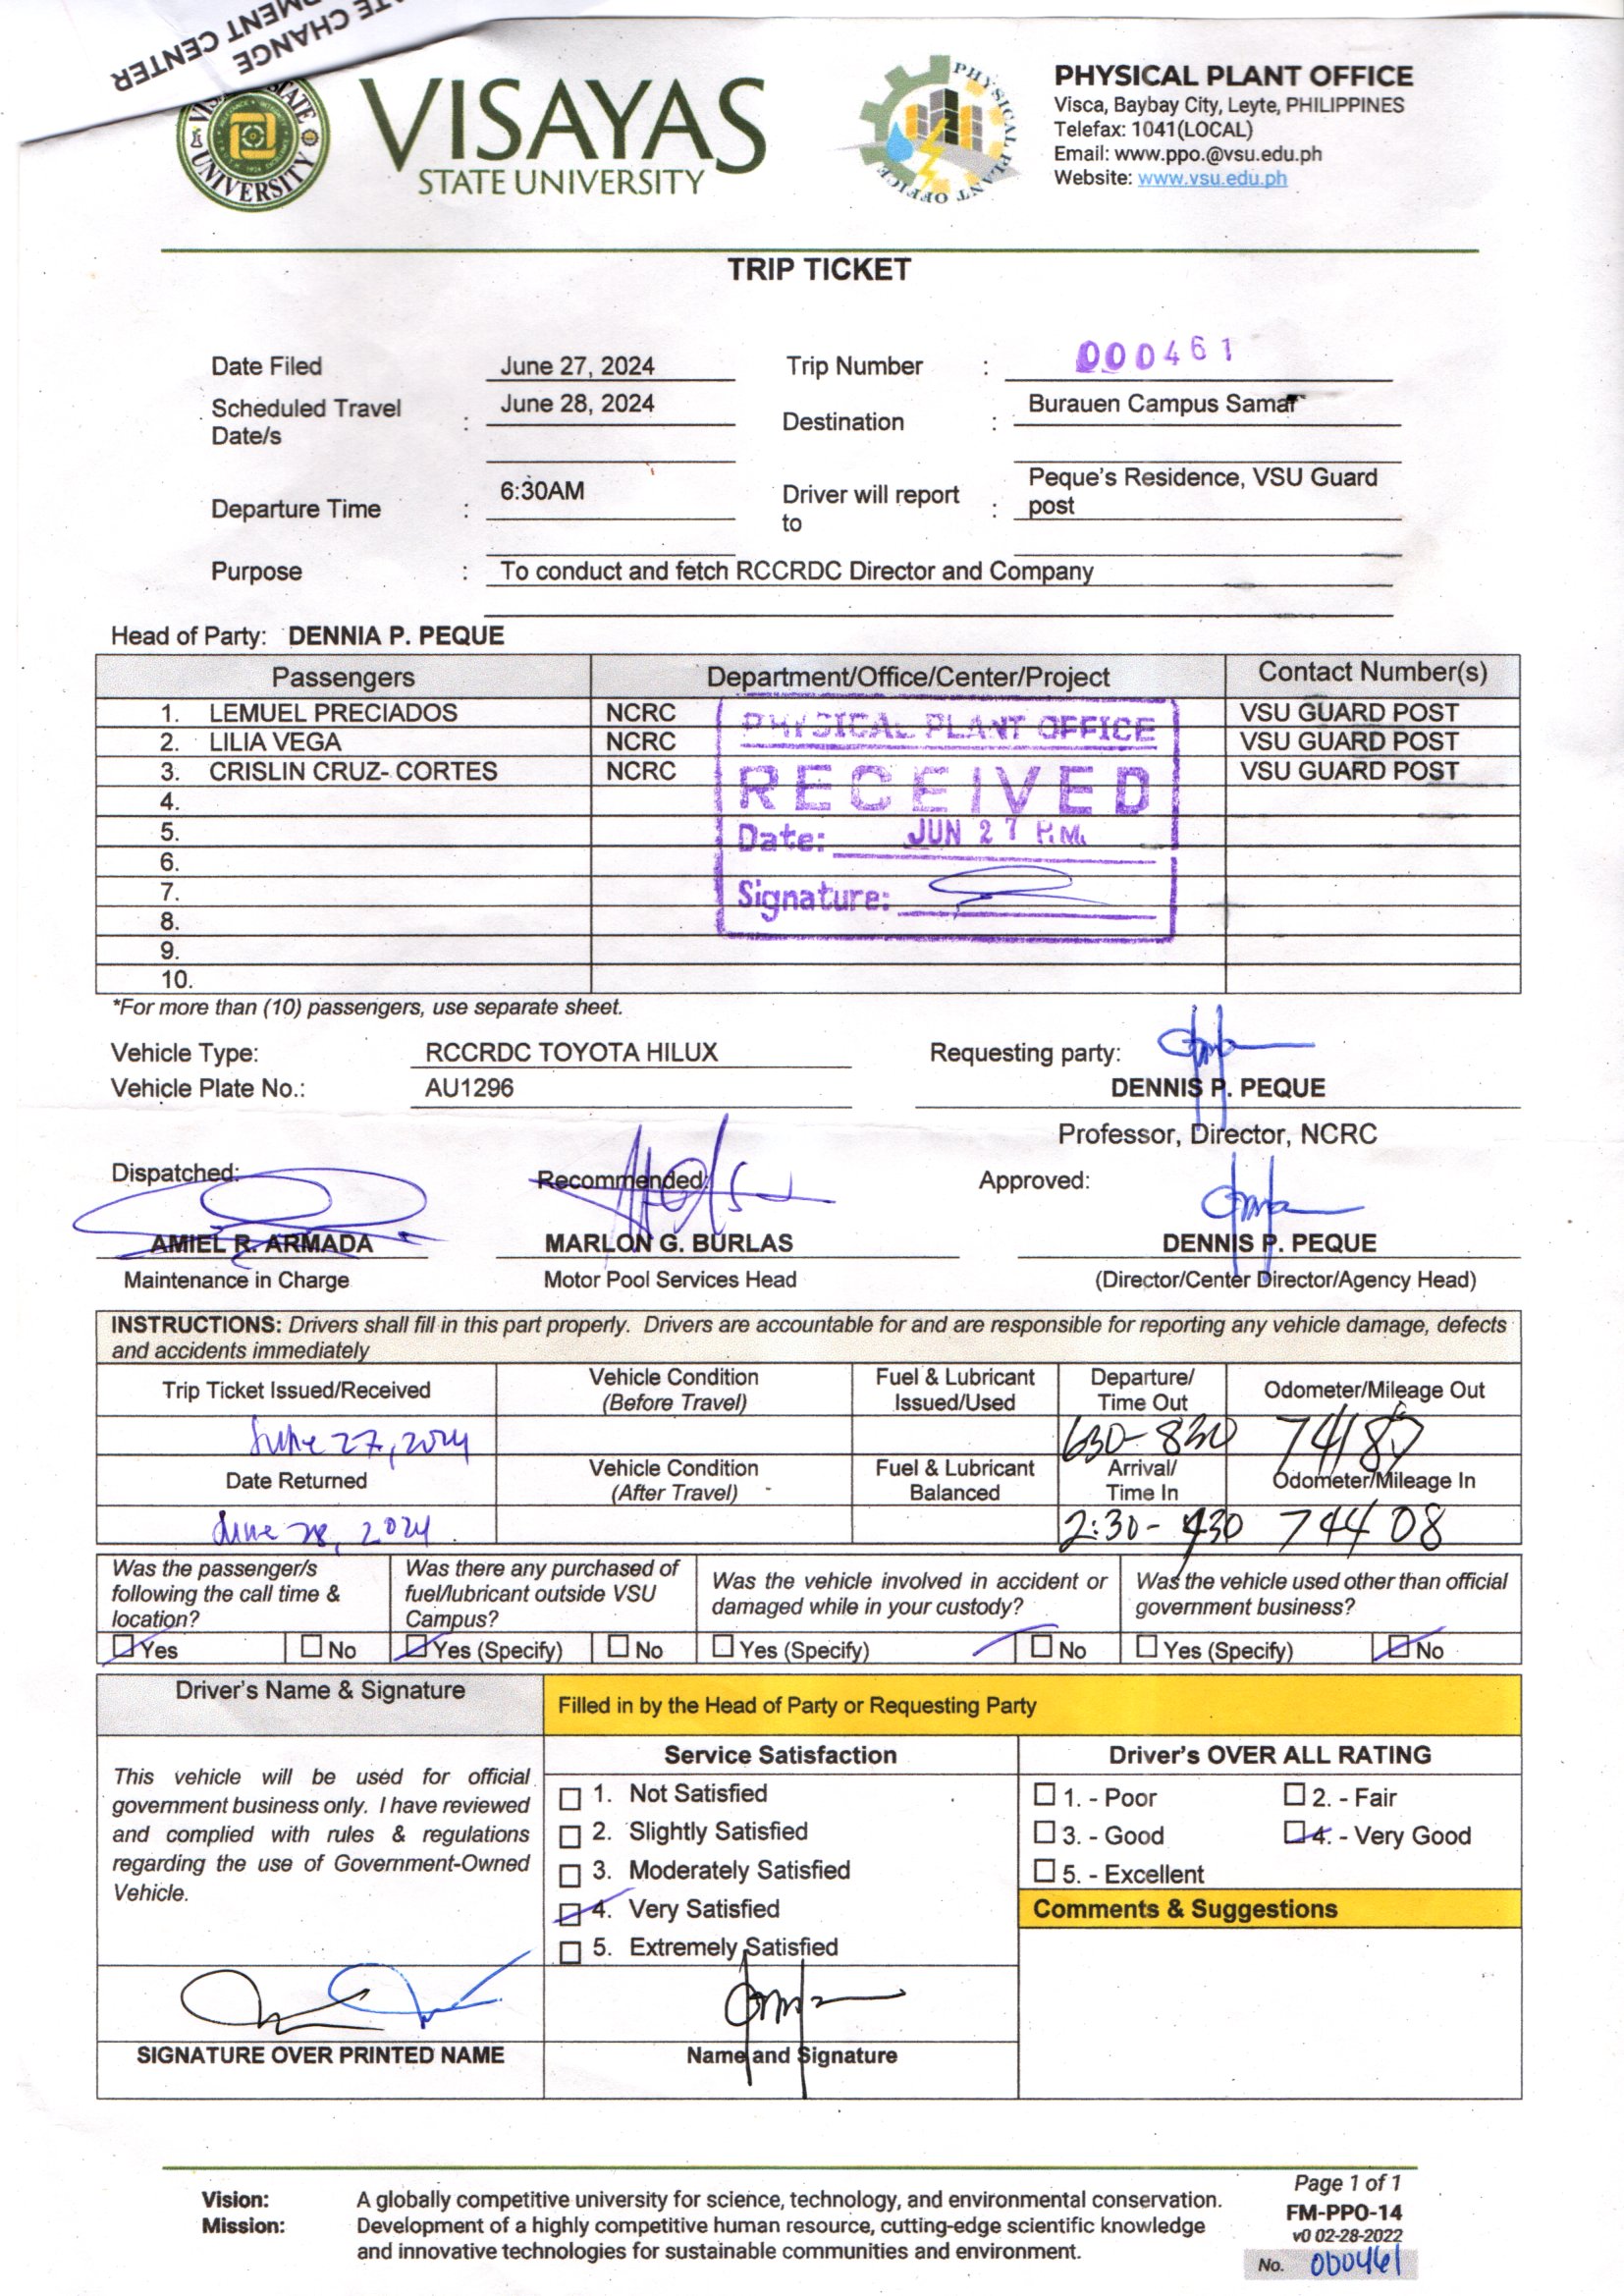 MENT CENTER
TE CHANGE
VISAYAS
STATE UNIVERSITY
PHYSICAL PLANT OFFICE
PHYSICAL PLANT OFFICE
Visca, Baybay City, Leyte, PHILIPPINES
Telefax: 1041(LOCAL)
Email: www.ppo.@vsu.edu.ph
Website: www.vsu.edu.ph
TRIP TICKET
Date Filed June 27, 2024 Trip Number : 000461
Scheduled Travel Date/s : June 28, 2024 Destination : Burauen Campus Samar
Departure Time : 6:30AM Driver will report to : Peque's Residence, VSU Guard post
Purpose : To conduct and fetch RCCRDC Director and Company
Head of Party: DENNIA P. PEQUE
Passengers Department/Office/Center/Project Contact Number(s)
1. LEMUEL PRECIADOS NCRC VSU GUARD POST
2. LILIA VEGA NCRC VSU GUARD POST
3. CRISLIN CRUZ- CORTES NCRC VSU GUARD POST
4.
5.
6.
7.
8.
9.
10.
PHYSICAL PLANT OFFICE
RECEIVED
Date: JUN 27 P.M.
Signature:
*For more than (10) passengers, use separate sheet.
Vehicle Type: RCCRDC TOYOTA HILUX Requesting party:
Vehicle Plate No.: AU1296 DENNIS P. PEQUE
Professor, Director, NCRC
Dispatched: Recommended: Approved:
AMIEL R. ARMADA MARLON G. BURLAS DENNIS P. PEQUE
Maintenance in Charge Motor Pool Services Head (Director/Center Director/Agency Head)
INSTRUCTIONS: Drivers shall fill in this part properly. Drivers are accountable for and are responsible for reporting any vehicle damage, defects
and accidents immediately
Trip Ticket Issued/Received Vehicle Condition (Before Travel) Fuel & Lubricant Issued/Used Departure/ Time Out Odometer/Mileage Out
June 27, 2024 630-830
Date Returned Vehicle Condition (After Travel) Fuel & Lubricant Balanced Arrival/ Time In Odometer/Mileage In
June 28, 2024 2:30- 430 74408
Was the passenger/s following the call time & location? Was there any purchased of fuel/lubricant outside VSU Campus? Was the vehicle involved in accident or damaged while in your custody? Was the vehicle used other than official government business?
Yes No Yes (Specify) No Yes (Specify) No Yes (Specify) No
Driver's Name & Signature Filled in by the Head of Party or Requesting Party
This vehicle will be used for official
government business only. I have reviewed
and complied with rules & regulations
regarding the use of Government-Owned
Vehicle.
SIGNATURE OVER PRINTED NAME
Service Satisfaction
1. Not Satisfied
2. Slightly Satisfied
3. Moderately Satisfied
4. Very Satisfied
5. Extremely Satisfied
Name and Signature
Driver's OVER ALL RATING
1. - Poor 2. - Fair
3. - Good 4. - Very Good
5. - Excellent
Comments & Suggestions
Vision: A globally competitive university for science, technology, and environmental conservation.
Mission: Development of a highly competitive human resource, cutting-edge scientific knowledge
and innovative technologies for sustainable communities and environment.
Page 1 of 1
FM-PPO-14
v0 02-28-2022
No. 000461